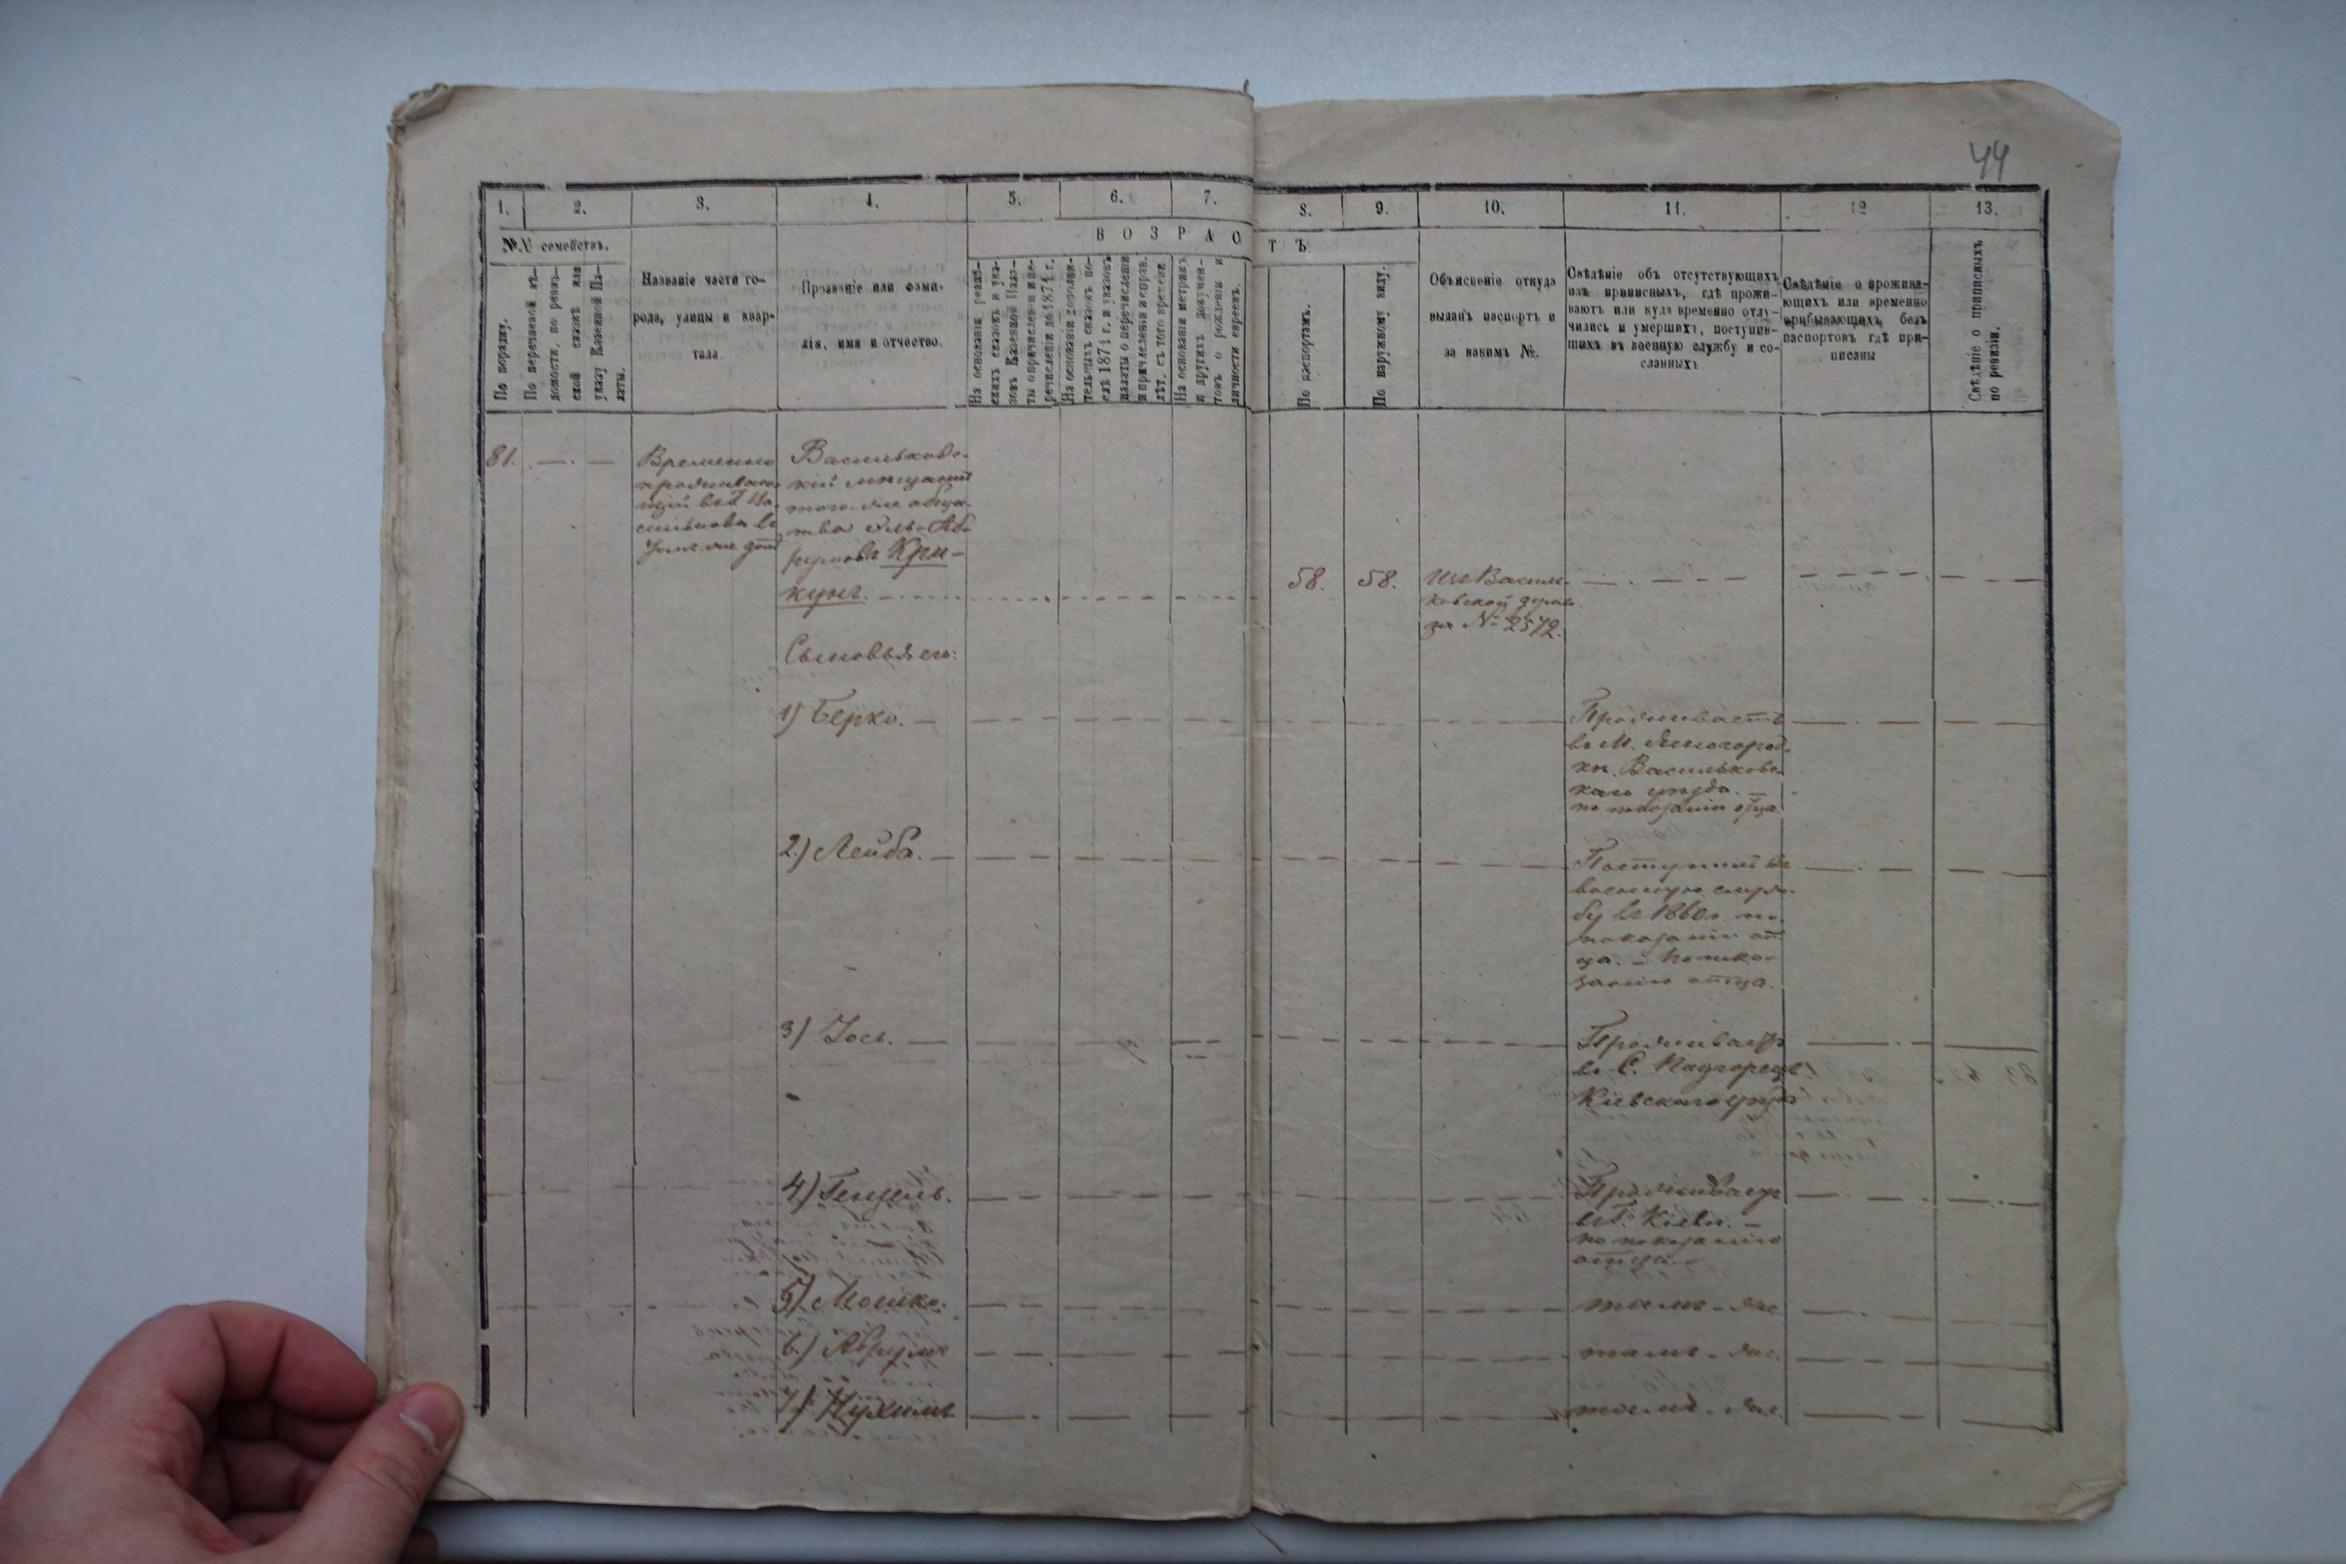 44
1. 2. 3. 4. 5. 6. 7. 8. 9. 10. 11. 12 13.
№№ семействъ.
В О З Р А С Т Ъ
По порядку.
По перечневой вѣ-
домости, по ревиз-
ской сказкѣ или
указу Казенной Па-
латы.
Названіе части го-
рода, улицы и квар-
тала.
Прозваніе или фами-
лія, имя и отчество.
На основаніи ревиз-
скихъ сказокъ и ука-
зовъ Казенной Пала-
ты о причисленіи и пе-
речисленіи до 1874 г.
На основаніи дополни-
тельныхъ сказокъ по-
слѣ 1874 г. и указовъ
палаты о перечисленіи
и причисленіи и исправ.
лѣт. съ того времени.
На основаніи метрикъ
и другихъ докумен-
товъ о рожденіи и
личности евреевъ.
По паспортамъ.
По наружному виду.
Объясненіе откуда
выданъ паспортъ и
за какимъ №.
Свѣдѣніе объ отсутствующихъ
изъ приписныхъ, гдѣ прожи-
ваютъ или куда временно отлу-
чились и умершихъ, поступив-
шихъ въ военную службу и со-
сланныхъ
Свѣдѣніе о прожива-
ющихъ или временно
прибывающихъ безъ
паспортовъ гдѣ при-
писаны
Свѣдѣніе о приписныхъ
по ревизіи.
81.
Временно
проживаю-
щій въ г. Ва-
сильковѣ въ
Васильковс-
кій мѣщанинъ
того-же общес-
тва Эль Аб-
румовъ Кри-
кунъ.
58. 58.
Изъ Василь-
ковской думы
за № 2572.
Сыновья его:
1) Берко.
Проживаетъ
въ М. Ясногород-
кѣ Васильковс-
каго уѣзда.
по показанію отца.
2.) Лейба.
Поступилъ въ
военную служ-
бу въ 1860 г. по
показанію от-
ца. – По пока-
занію отца.
3) Іось.
Проживаетъ
въ С. Подгорцы
Кіевскаго уѣзда
4) Гендель.
Проживаетъ
въ Г. Кіевѣ. –
по показанію
отца. –
5) Мошко.
тамъ-же
6.) Аврумъ
тамъ-же.
7) Нухимъ
тамъ-же